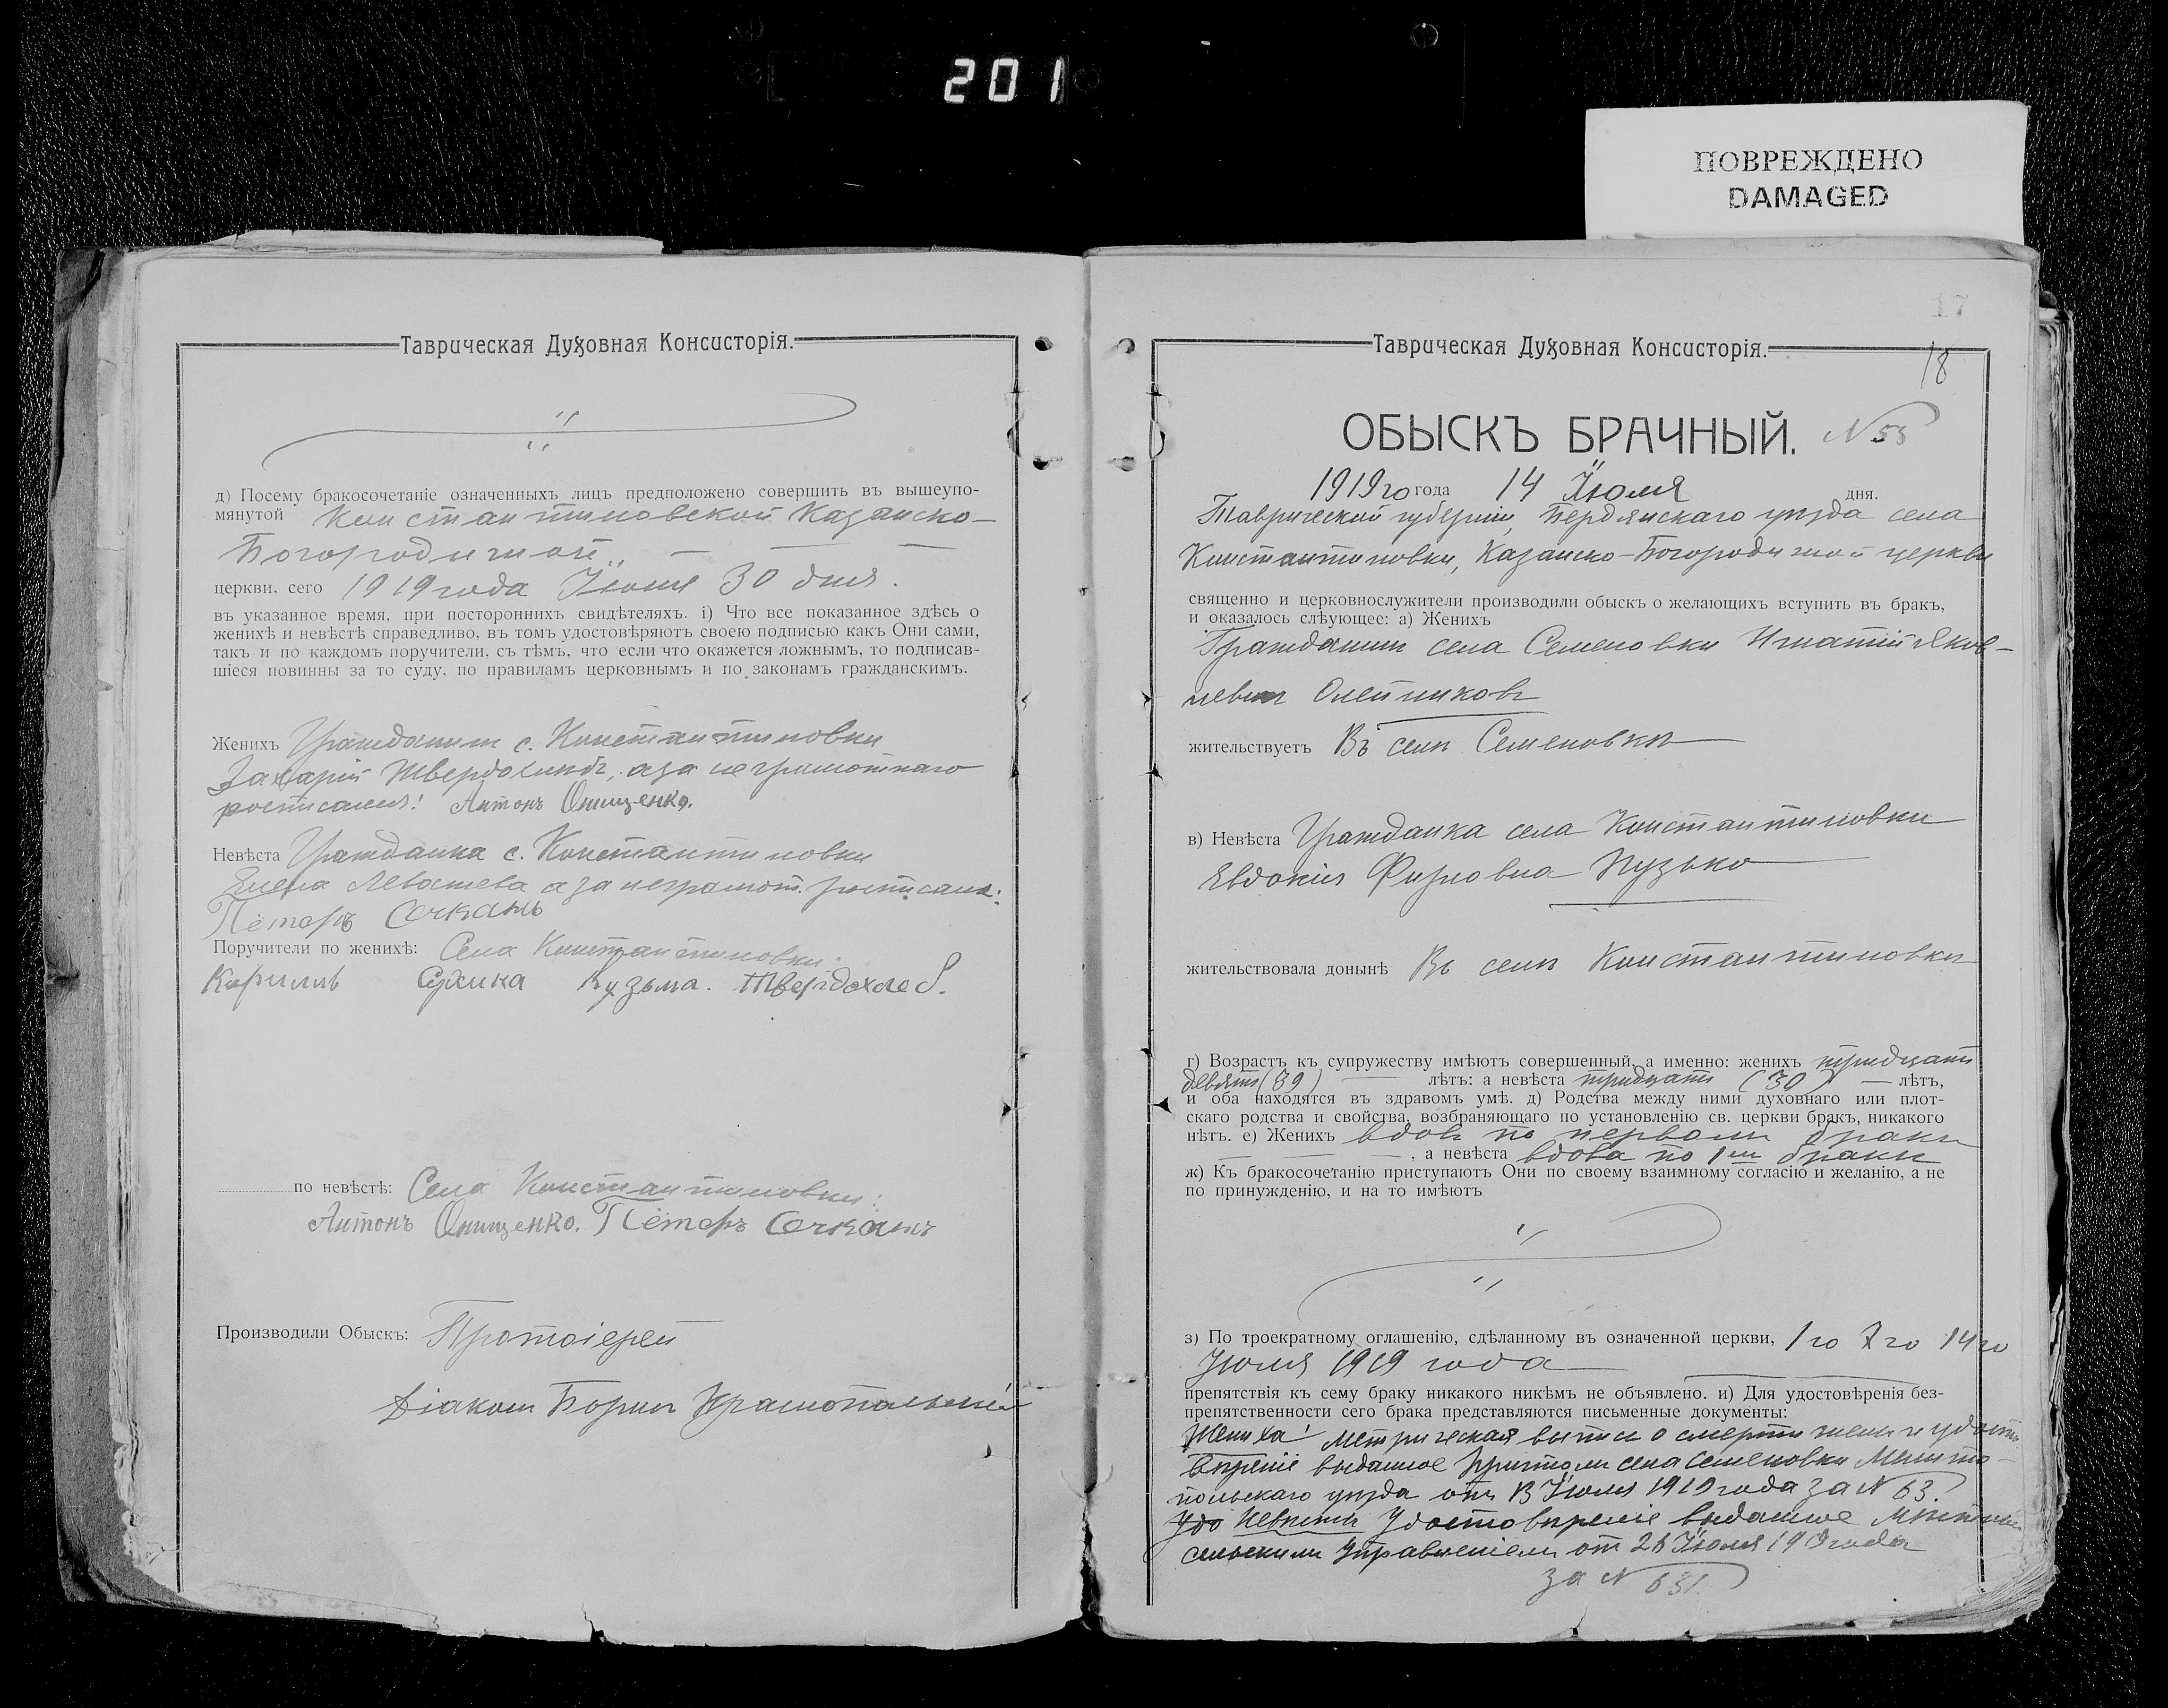 201
ПОВРЕЖДЕНО
DAMAGED
Таврическая Духовная Консисторія.
д) Посему бракосочетаніе означенныхъ лицъ предположено совершить въ вышеупо-
мянутой Константиновской Казанско-
Богородичной
церкви, сего 1919 года Іюня 30 дня.
въ указанное время, при постороннихъ свидѣтеляхъ. і) Что все показанное здѣсь о
женихѣ и невѣстѣ справедливо, въ томъ удостовѣряютъ своею подписью какъ Они сами,
такъ и по каждомъ поручители, съ тѣмъ, что если что окажется ложнымъ, то подписав-
шіеся повинны за то суду, по правиламъ церковнымъ и по законамъ гражданскимъ.
Женихъ Гражданин с. Константиновки
Захарій Твердохлибъ, а за неграмотнаго
росписался: Антонъ Онищенко.
Невѣста Гражданка с. Константиновки
Елена Левашева а за неграмот. росписался:
Пётеръ Сочканъ
Поручители по женихѣ: Села Константиновки:
Кириллъ Сухина Кузьма. Твердохлеб.
по невѣстѣ: Села Константиновки:
Антонъ Онищенко. Пётеръ Сочканъ
Производили Обыскъ: Протоіерей
Діакон Борис
17
Таврическая Духовная Консисторія.
18
ОБЫСКЪ БРАЧНЫЙ. N 55
1919 го года 14 Іюля дня.
Таврической губерніи, Бердянскаго уѣзда села
Константиновки, Казанско-Богородичной церкви
священно и церковнослужители производили обыскъ о желающихъ вступить въ бракъ,
и оказалось слѣующее: а) Женихъ
Гражданин села Семеновки Игнатій Яков-
левич Олейниковъ
жительствуетъ Въ селѣ Семеновкѣ
в) Невѣста Гражданка села Константиновки
Евдокія Фирловна Пузько
жительствовала донынѣ Въ селѣ Константиновкѣ
г) Возрастъ къ супружеству имѣютъ совершенный, а именно: женихъ тридцать
девять (39) лѣтъ: а невѣста тридцать (30) лѣтъ,
и оба находятся въ здравомъ умѣ. д) Родства между ними духовнаго или плот-
скаго родства и свойства, возбраняющаго по установленію св. церкви бракъ, никакого
нѣтъ. е) Женихъ вдов по первом бракѣ
, а невѣста вдова по 1м бракѣ
ж) Къ бракосочетанію приступаютъ Они по своему взаимному согласію и желанію, а не
по принужденію, и на то имѣютъ
з) По троекратному оглашенію, сдѣланному въ означенной церкви, 1го 7го 14го
Іюля 1919 года
препятствія къ сему браку никакого никѣмъ не объявлено. и) Для удостовѣренія без-
препятственности сего брака представляются письменные документы:
Жениха: Метрическая выпись о смерти жены и удосто
вѣреніе выданное Причтом села Семеновки Мелито-
польскаго уѣзда от 13 Іюля 1919 года за N 63.
Удо Невѣсты Удостовѣреніе выданное
сельским Управленіем от Іюля 1919 года
за N 631.